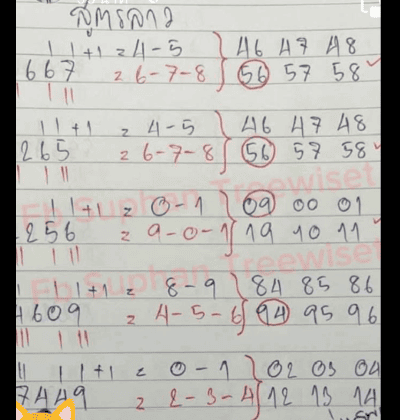 สูตรลาว
11+1 = 4-5 } 46 47 48
667 = 6-7-8 } 56 57 58
11+1 = 4-5 } 46 47 48
265 = 6-7-8 } 56 57 58
11+1 = 0-1 } 09 00 01
256 = 9-0-1 } 19 10 11
11+1 = 8-9 } 84 85 86
4609 = 4-5-6 } 94 95 96
11+1 = 0-1 } 02 03 04
7449 = 2-3-4 } 12 13 14
Fb Suphan Treewiset
Fb Suphan Treewiset